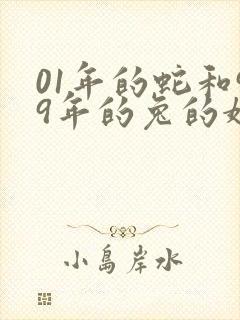 01年的蛇和
9年的兔的
小島岸水